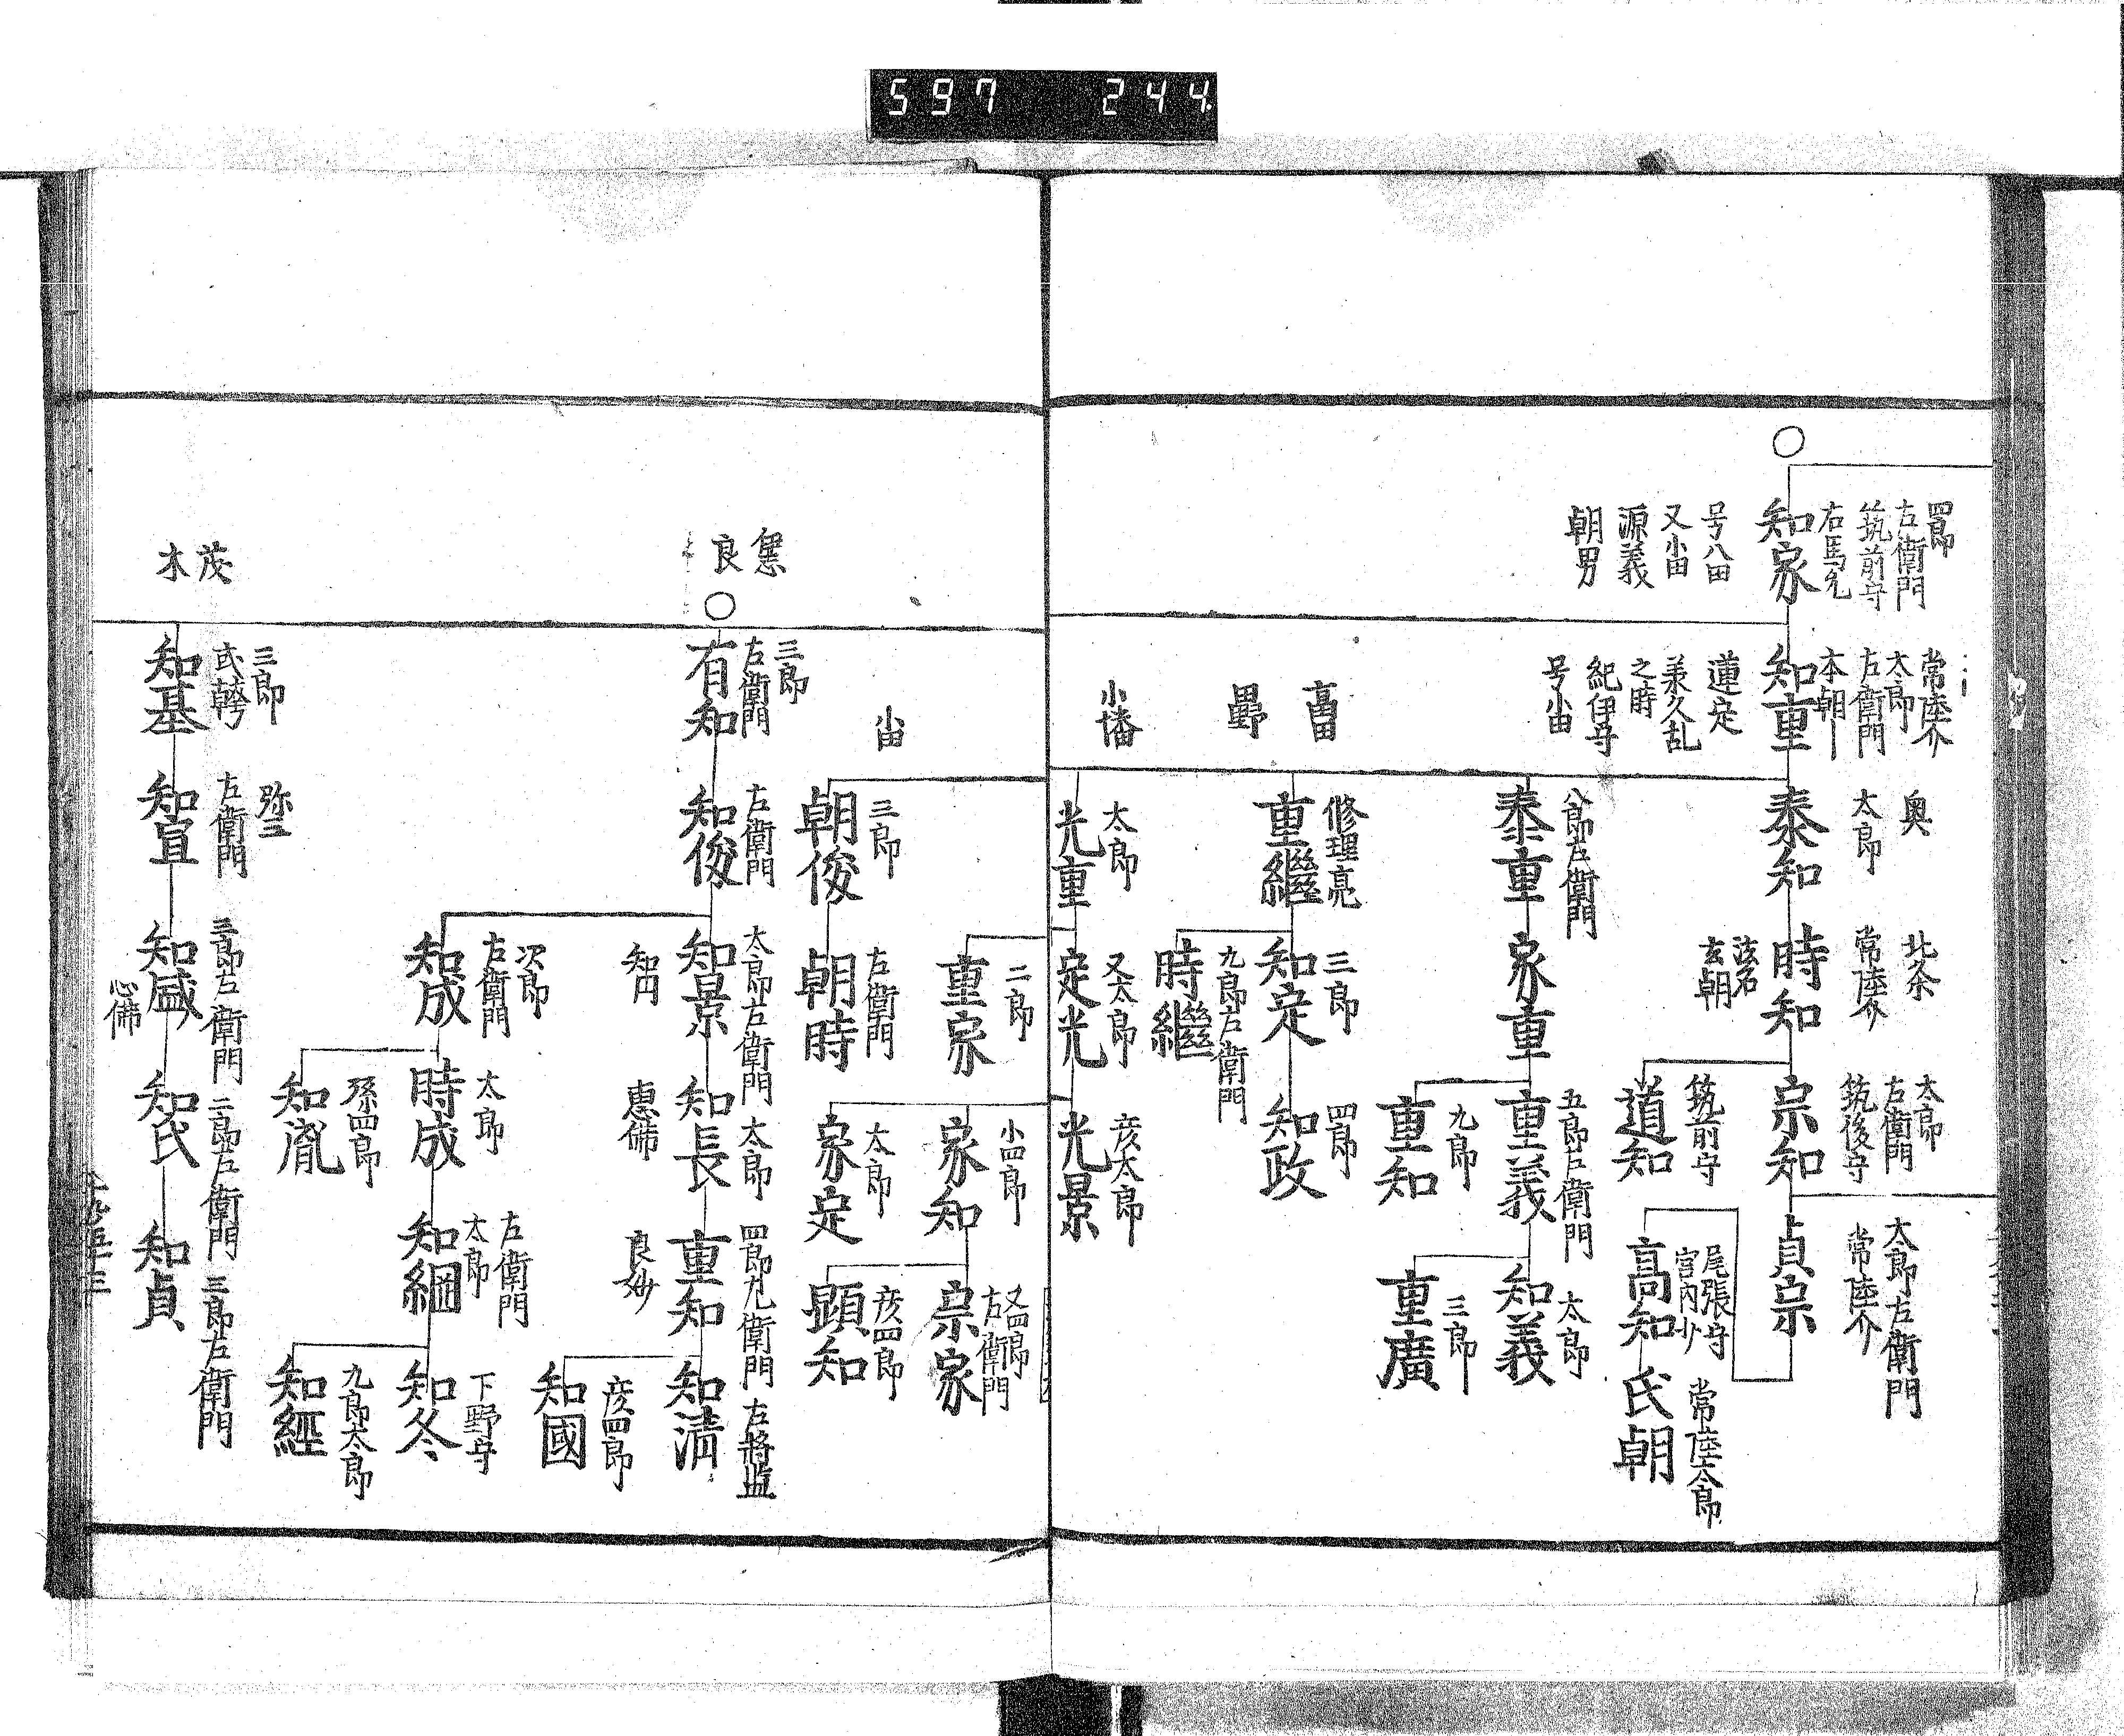 597 244
四郎
左衛門
筑前守
右馬允
知家
号八田
又小田
源義
朝男
常陸介
太郎
左衛門
本朝
知重
蓮定
承久乱
之時
紀伊守
号小田
高田
小幡
奥
太郎
泰知
八郎左衛門
泰重
修理亮
重継
太郎
光重
北条
常陸介
時知
法名
玄朝
家重
三郎
知定
九郎左衛門
時繼
又太郎
定光
太郎
左衛門
筑後守
宗知
筑前守
道知
五郎左衛門
重義
九郎
重知
四郎
知政
彦太郎
光景
太郎左衛門
常陸介
貞宗
尾張守
宮内少
高知
太郎
知義
三郎
重廣
常陸太郎
氏朝
小田
三郎
朝俊
二郎
重家
左衛門
朝時
小四郎
家知
太郎
家定
又四郎
左衛門
宗家
彦四郎
顕知
三郎
左衛門
有知
左衛門
知俊
太郎左衛門
知景
知円
次郎
左衛門
知成
太郎
知長
恵佛
太郎
時成
孫四郎
知胤
四郎左衛門
重知
良妙
左衛門
太郎
知綱
左将監
知清
彦四郎
知國
下野守
知冬
九郎太郎
知經
茂
木
三郎
知基
弥三
左衛門
知宣
三郎左衛門
知盛
心佛
二郎左衛門
知氏
三郎左衛門
知貞